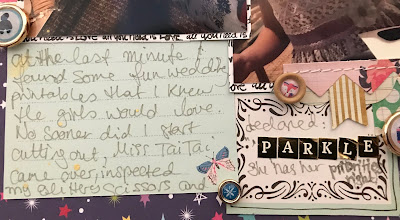 all you need is Love all you need is Love all you need is
at the last minute I
found some fun wedding
printables that I knew
the girls would love.
No sooner did I start
cutting out, Miss TaiTai
came over, inspected
my glittered scissors and
declared:
SPARKLE
She has her priorities